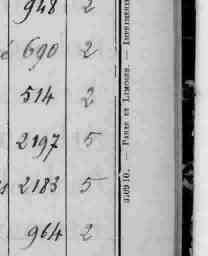 948 2
é 690 2
514 2
2197 5
2183 5
964 2
PARIS ET LIMOGES. — IMPRIMERIE